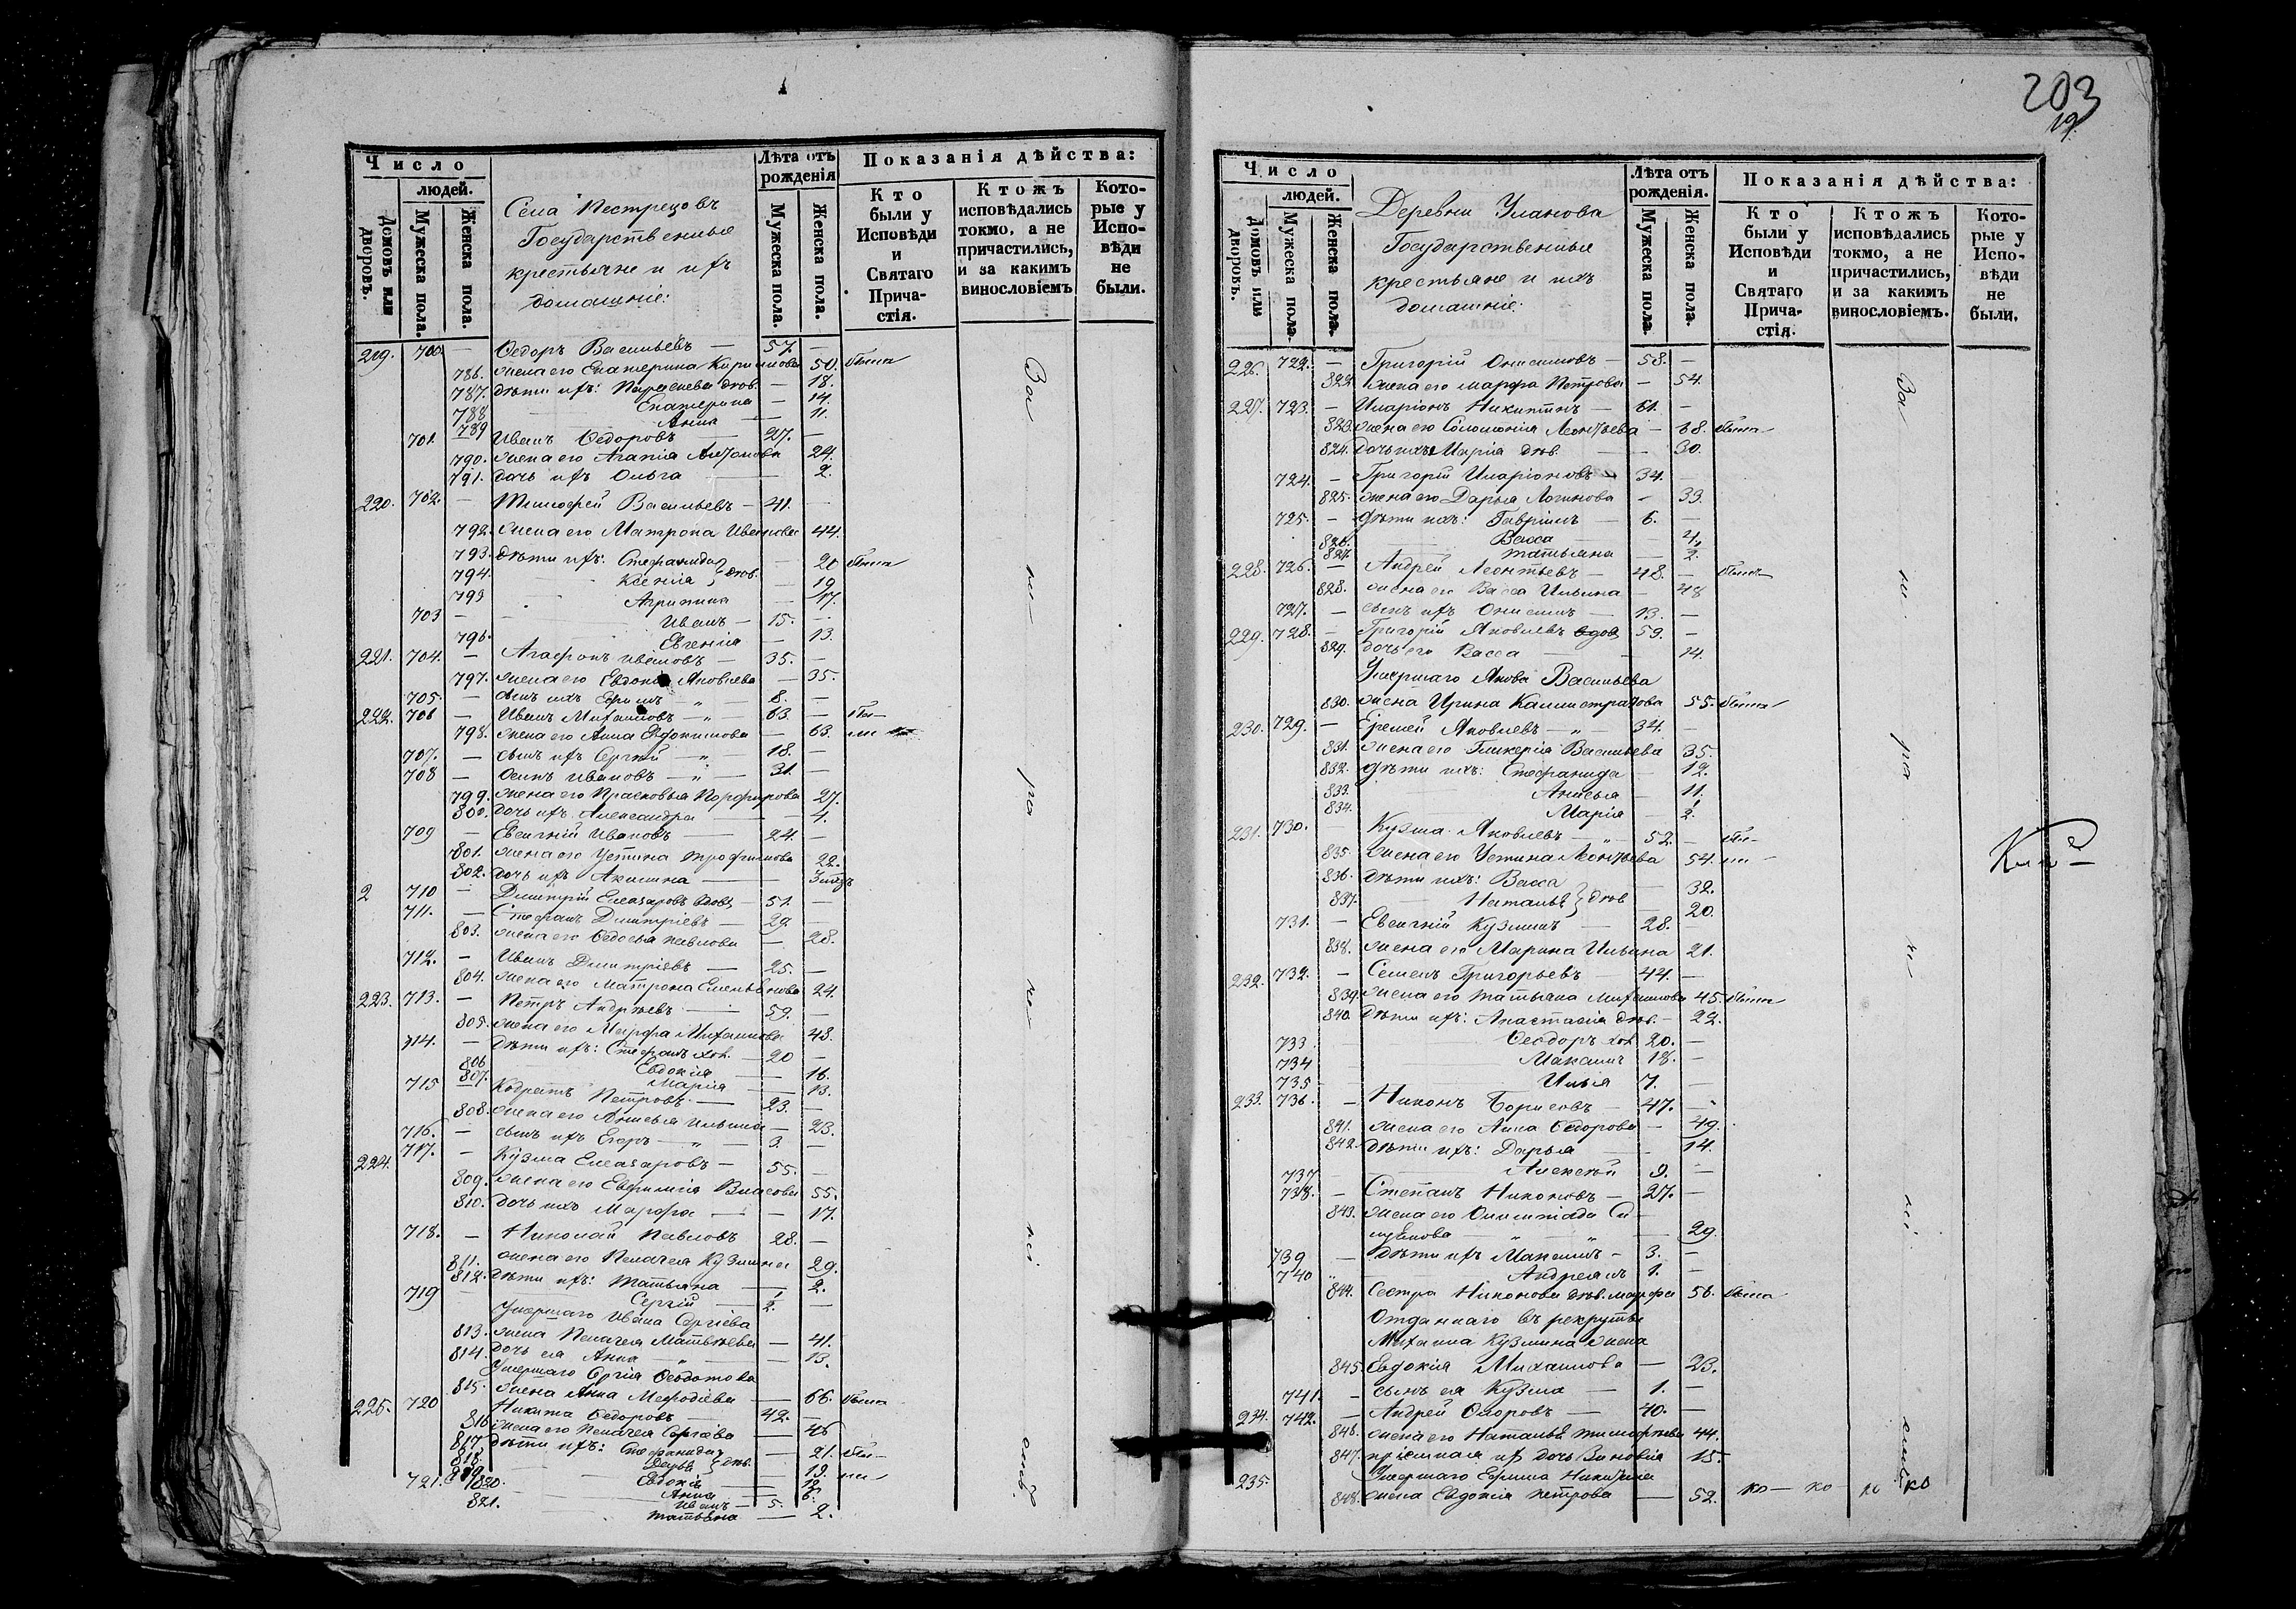 203
19.
Число
людей.
Домовъ или дворовъ.
Мужеска пола.
Женска пола.
Села Пестрецовъ
Государственные
крестьяне и ихъ
домашніе:
Лѣта отъ рожденія
Мужеска пола.
Женска пола.
Показанія дѣйства:
Кто были у Исповѣди и Святаго Причастія.
Ктожъ исповѣдались токмо, а не причастились, и за какимъ винословіемъ
Которые у Исповѣди не были.
219. 700. — Ѳедоръ Васильевъ — 57. —
786. жена его Екатерина 50. была
787. дѣти ихъ: дѣв. — 18.
788 Екатерина — 14.
789 Анна — 11.
701. Иванъ Ѳедоровъ 27. —
790. жена его Агапія 24.
791. дочь ихъ Ольга 2.
220. 702. — Тимофей Васильевъ — 41. —
792. жена его Матрона Иванова 44.
793. дѣти ихъ: Стефанида — 20 была
794. Ксенія дѣв. — 19
793 Агрипина — 17.
703 — Иванъ — 15. —
796. Евгенія — 13.
221. 704. — Агафонъ Ивановъ — 35. —
797. жена его Евдокія Яковлева — 35.
705. — сынъ ихъ Ефимъ — 8. —
222. 706 — Иванъ Михайловъ — 63. — бы—
798. жена его Анна Евдокимова — 63. ли
707. — сынъ ихъ Сергій — 18. —
708 — Осипъ Ивановъ — 31. —
799. жена его Прасковья Порфирова 27.
800. дочь ихъ Александра — 4.
709 — Евсигній Ивановъ — 24. —
801. жена его Устина Трофимова 22.
802. дочь ихъ Акилина —
2 710 — Димитрій Елеазаровъ вдов. — 51. —
711. — Стефанъ Димитріевъ — 29. —
803. жена его Ѳедосья Павлова — 28.
712. — Иванъ Димитріевъ — 25. —
804. жена его Матрона 24.
223. 713. — Петръ Андреевъ — 59. —
805. жена его Марфа Михайлова 48.
714. — дѣти ихъ: Стефанъ хол. — 20 —
806 Евдокія — 16.
807. Марія — 13.
715 Кодратъ Петровъ — 23. —
808. жена его Анисья Ильина — 23.
716. — сынъ ихъ Егоръ — 3. —
224. 717. — Кузма Елеазаровъ — 55. —
809. жена его Евфимія Власова 55.
810. дочь ихъ Марфа — 17.
718. — Николай Павловъ 28. —
811. жена его Пелагея Кузмина 29.
812. дѣти ихъ: Татьяна — 2.
719 — Сергій — ½. —
Умершаго Ивана Сергіева
813. жена Пелагея Матвѣева — 41.
814. дочь ея Анна — 13.
Умершаго Сергія Ѳеодотова
815. жена Анна Мефодіева — 66. была
225. 720 Никита Ѳедоровъ 42. —
816 жена его Пелагея Сергіева — 46
817. дѣти ихъ: Стефанида — 21. бы—
818. Дарья дѣв. — 19. ли
819 Евдокія — 12.
820. Анна — 6.
721. Иванъ — 5.
821. Татьяна — 2.
Вa
ли
ра
ко
ли.
Число
людей.
Домовъ или дворовъ.
Мужеска пола.
Женска пола.
Деревни Уланова
Государственные
крестьяне и ихъ
домашніе:
Лѣта отъ рожденія.
Мужеска пола.
Женска пола.
Показанія дѣйства:
Кто были у Исповѣди и Святаго Причастія.
Ктожъ исповѣдались токмо, а не причастились, и за какимъ винословіемъ.
Которые у Исповѣди не были.
226. 722. — Григорій Онисимовъ — 58. —
822. жена его Марфа Петрова — 54.
227. 723. — Иларіонъ Никитинъ — 61. —
823. жена его Соломонія Леонтьева — 68. была
824. дочь ихъ Марія дѣв. — 30.
724. — Григорій Иларіоновъ 34. —
825. жена его Дарья Логинова — 33.
725. — дѣти ихъ: Гавріилъ — 6. —
826. Васса — 4.
827. Татьяна — 2.
228. 726. — Андрей Леонтьевъ — 48. — былъ
828. жена его Васса Ильина — 48
727. — сынъ ихъ Онисимъ — 13. —
229. 728. — Григорій Яковлевъ вдов 59. —
829. дочь его Васса — 14.
Умершаго Якова Васильева
830. жена Ирина Каллистратова 55. была
230. 729. — Еремей Яковлевъ — 34. —
831. жена его Гликерія Васильева 35.
832. дѣти ихъ: Стефанида — 12.
833. Анисья — 11.
834. Марія — ½.
231. 730. — Кузма Яковлевъ — 52. — бы—
835. жена его Устина Леонтьева 54. ли
836. дѣти ихъ: Васса — 32.
837. Наталья дѣв — 20.
731. — Евсигній Кузминъ — 28. —
838. жена его Марина Ильина 21.
232. 732. — Семенъ Григорьевъ — 44. —
839. жена его Татьяна Михайлова 45. была
840. дѣти ихъ: Анастасія дѣв. — 22.
733 Ѳеодоръ хол. 20. —
734 Максимъ 18. —
735 Илья 7. —
233. 736. — Никонъ Борисовъ — 47. —
841. жена его Анна Ѳедорова — 49.
842. дѣти ихъ: Дарья — 14.
737 Алексѣй 9. —
738. — Степанъ Никоновъ — 27. —
843. жена его Олимпіада
29.
739 — дѣти ихъ Максимъ — 3. —
740 Андреянъ 1. —
844. Сестра Никонова дѣв. Марфа 56. была
Отданнаго въ рекруты
Михаила Кузмина жена
845. Евдокія Михайлова — 23.
741. — сынъ ея Кузма — 1. —
234. 742. — Андрей — 40. —
846. жена его Наталья Тимофеева 44.
847. пріемная их дочь 15.
235. Умершаго Ефима Никитина
848. жена Евдокія Петрова — 52.
Ва
ли
ра
ли
ко — ко